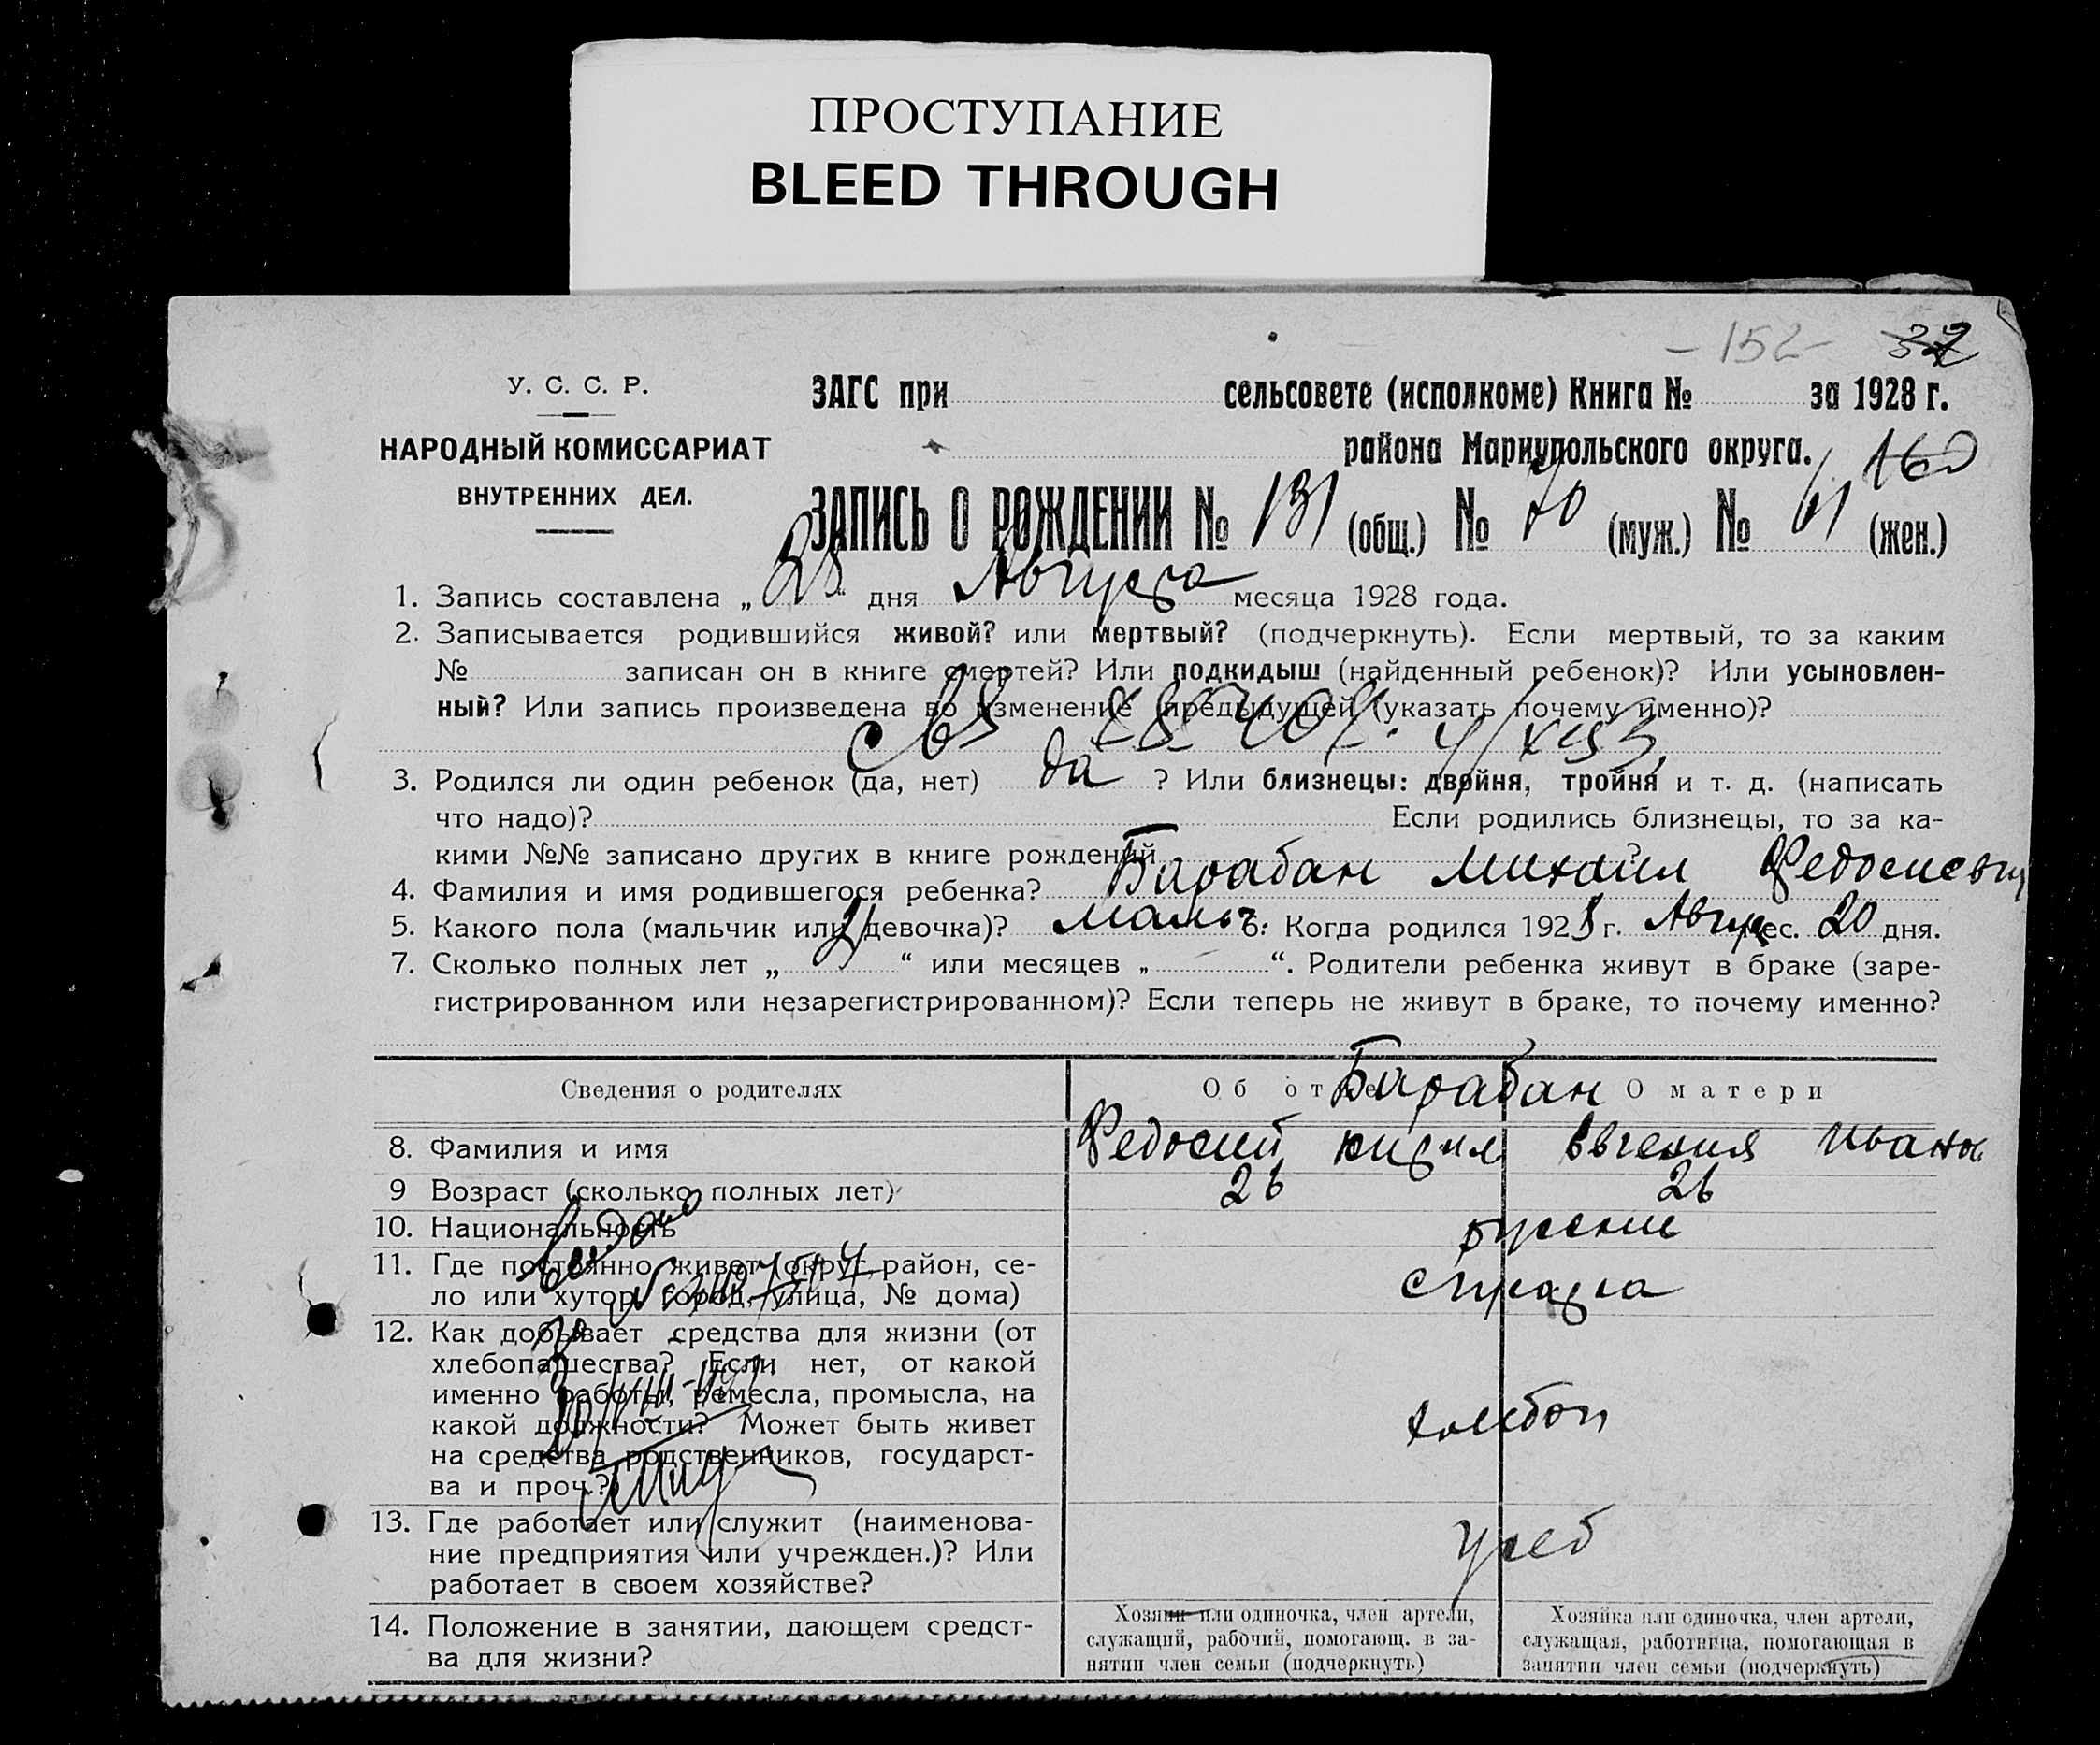 ПРОСТУПАНИЕ
BLEED THROUGH
- 152 - 32
У. С. С. Р.
НАРОДНЫЙ КОМИССАРИАТ
ВНУТРЕННИХ ДЕЛ.
ЗАГС при сельсовете (исполкоме) Книга № за 1928 г.
района Мариупольского округа. 160
ЗАПИСЬ О РОЖДЕНИИ № 131 (общ.) № 70 (муж.) № 61 (жен.)
1. Запись составлена „ 28 " дня Августа месяца 1928 года.
2. Записывается родившийся живой? или мертвый? (подчеркнуть). Если мертвый, то за каким
№ записан он в книге смертей? Или подкидыш (найденный ребенок)? Или усыновлен-
ный? Или запись произведена во изменение предыдущей (указать почему именно)?
3. Родился ли один ребенок (да, нет) да ? Или близнецы: двойня, тройня и т. д. (написать
что надо)? Если родились близнецы, то за ка-
кими №№ записано других в книге рождений ?
4. Фамилия и имя родившегося ребенка? Барабан Михаил Федосиевич
5. Какого пола (мальчик или девочка)? мальч 6: Когда родился 1928 г. Август мес. 20 дня.
7. Сколько полных лет „ “ или месяцев „ “. Родители ребенка живут в браке (заре-
гистрированном или незарегистрированном)? Если теперь не живут в браке, то почему именно?
Сведения о родителях Об отце О матери
Барабан
8. Фамилия и имя Федосий Евгения Иванов
9 Возраст (сколько полных лет) 26 26
10. Национальность русские
11. Где постоянно живет (округ, район, се-
ло или хутор, город, улица, № дома)
12. Как добывает средства для жизни (от
хлебопашества? Если нет, от какой
именно работы, ремесла, промысла, на
какой должности? Может быть живет
на средства родственников, государст-
ва и проч.?)
13. Где работает или служит (наименова-
ние предприятия или учрежден.)? Или
работает в своем хозяйстве?
14. Положение в занятии, дающем средст-
ва для жизни?
Хозяин или одиночка, член артели,
служащий, рабочий, помогающ. в за-
нятии член семьи (подчеркнуть)
Хозяйка или одиночка, член артели,
служащая, работница, помогающая в
занятии член семьи (подчеркнуть)